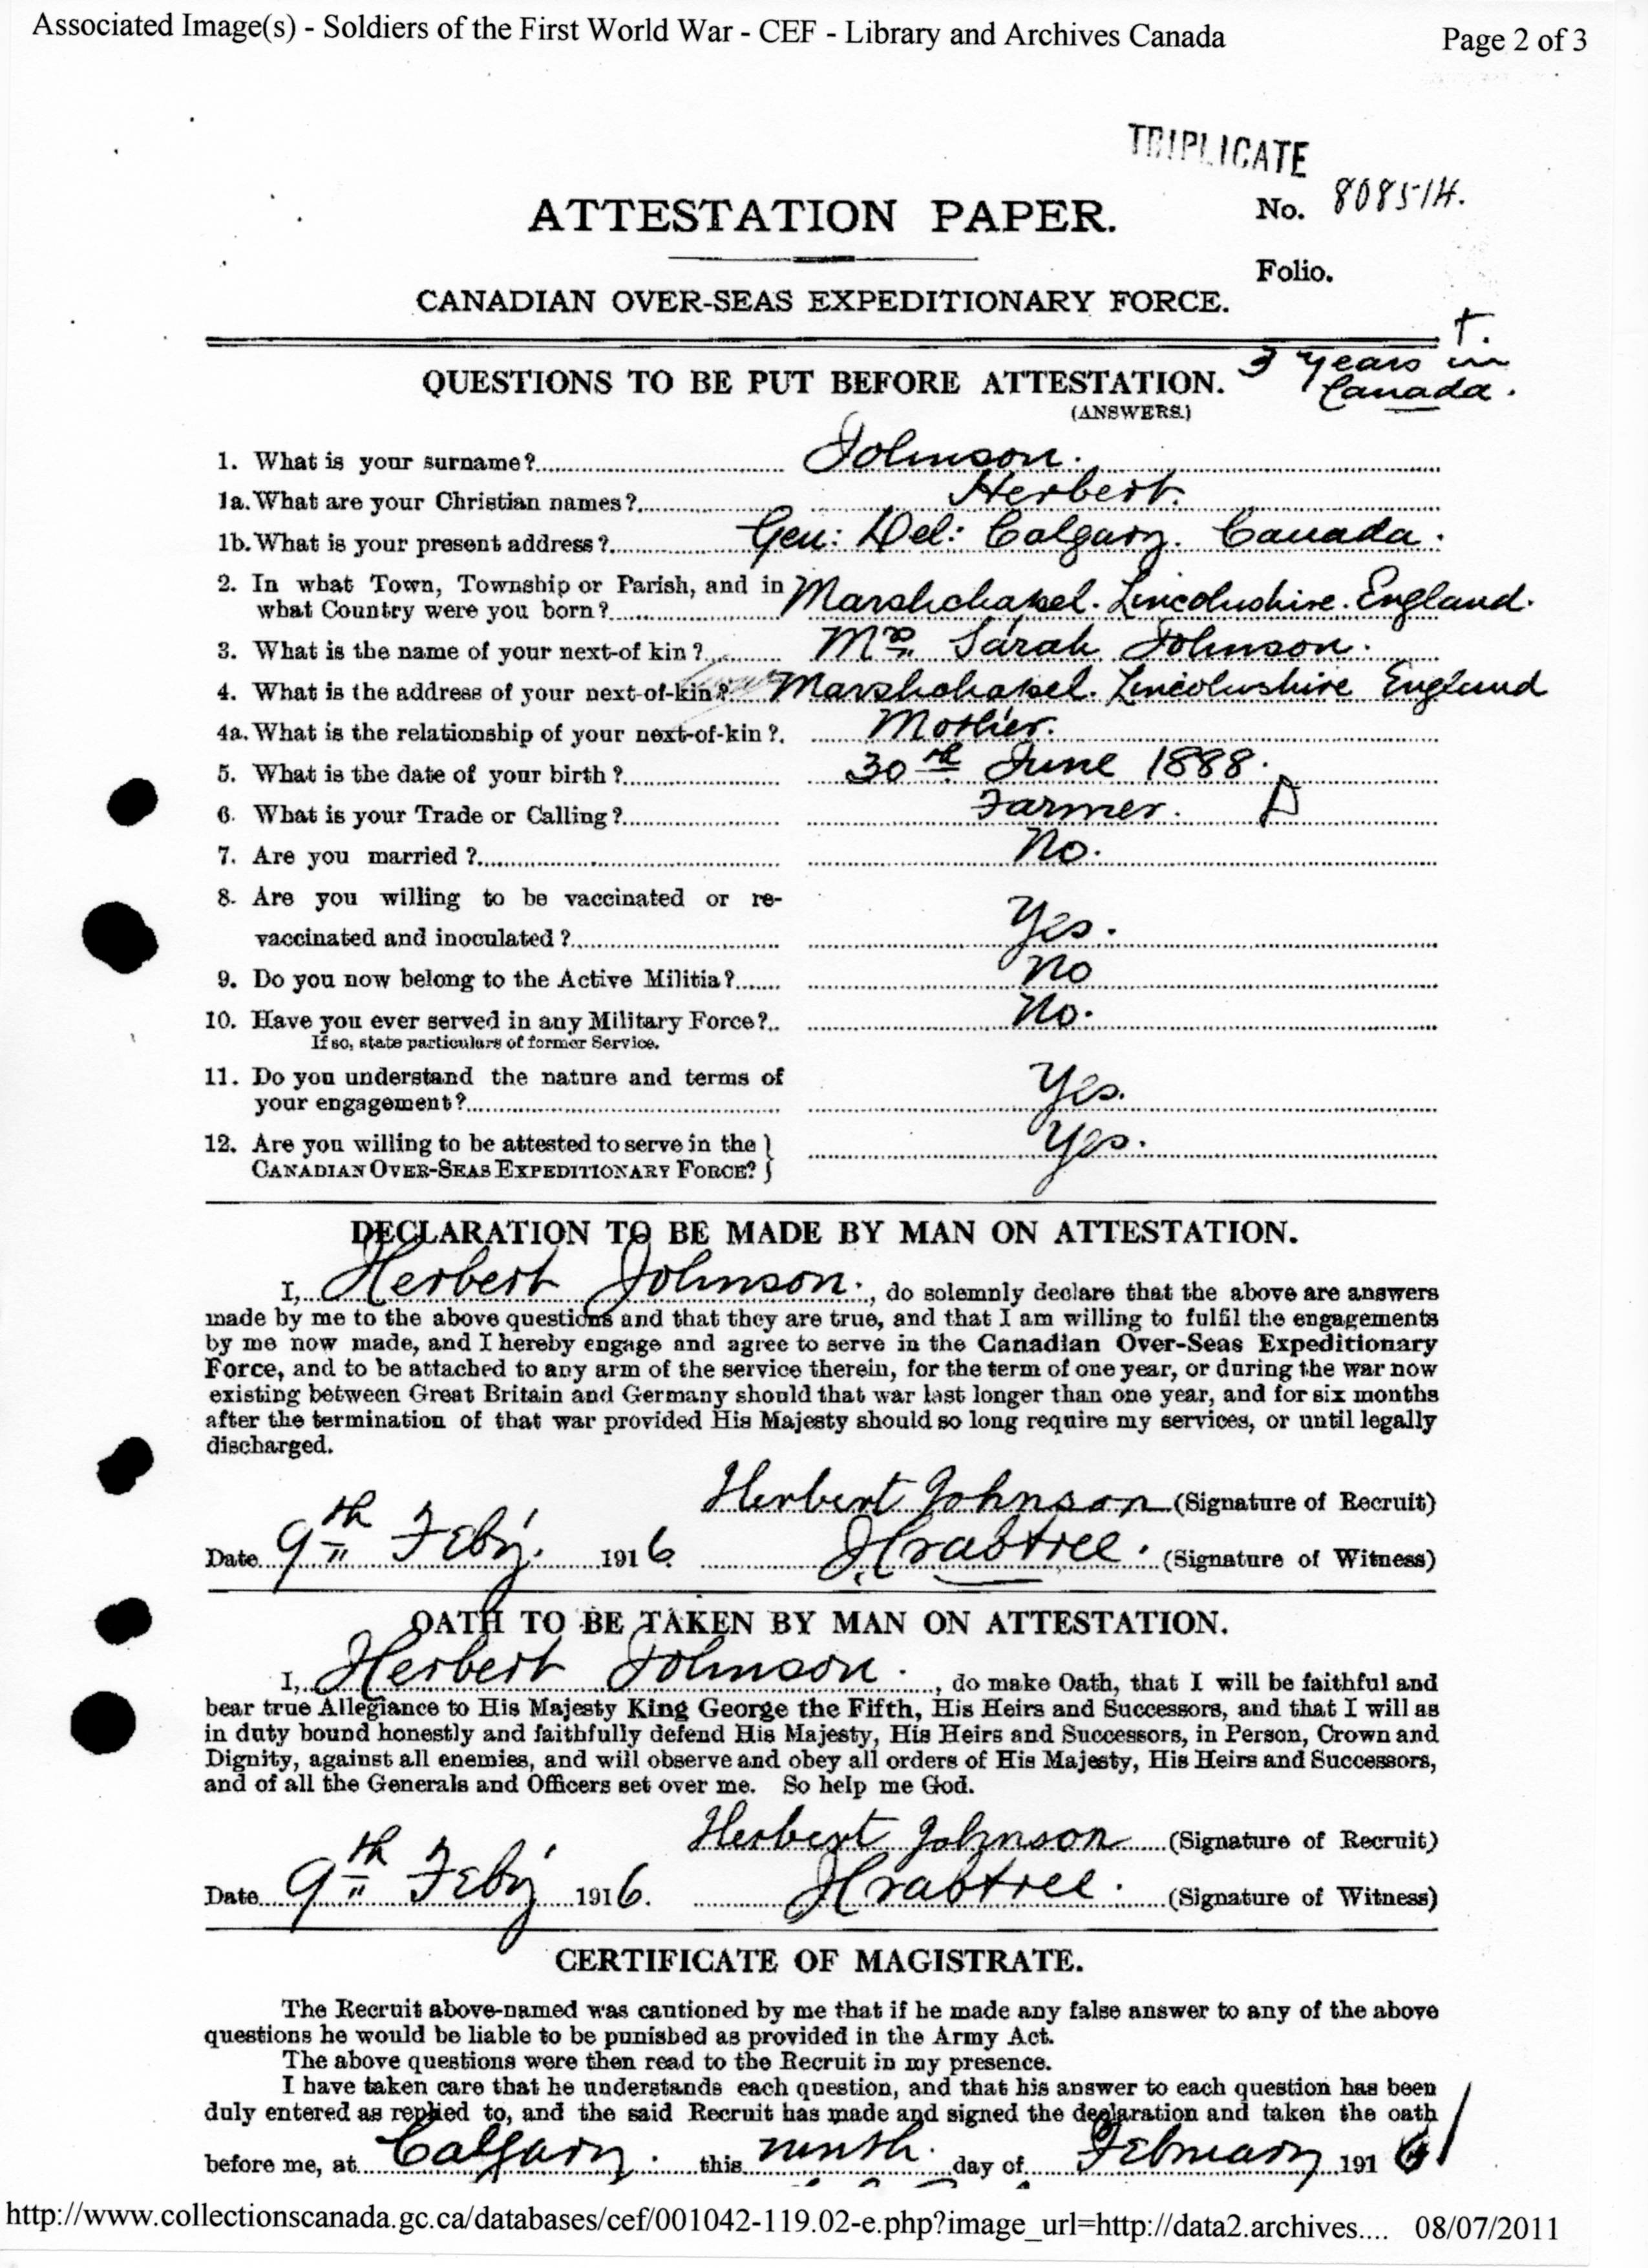 Associated Image(s) - Soldiers of the First World War - CEF - Library and Archives Canada Page 2 of 3
TRIPLICATE
ATTESTATION PAPER. No. 808514.
Folio.
CANADIAN OVER-SEAS EXPEDITIONARY FORCE.
T.
QUESTIONS TO BE PUT BEFORE ATTESTATION. 3 years in
Canada.
(ANSWERS.)
1. What is your surname? Johnson.
1a. What are your Christian names? Herbert.
1b. What is your present address? Gen: Del: Calgary. Canada.
2. In what Town, Township or Parish, and in
what Country were you born? Marshchapel. Lincolnshire. England.
3. What is the name of your next-of kin? Mrs. Sarah Johnson.
4. What is the address of your next-of-kin? Marshchapel. Lincolnshire England
4a. What is the relationship of your next-of-kin? Mother.
5. What is the date of your birth? 30th June 1888.
6. What is your Trade or Calling? Farmer.
7. Are you married? No.
8. Are you willing to be vaccinated or re-
vaccinated and inoculated? Yes.
9. Do you now belong to the Active Militia? No
10. Have you ever served in any Military Force? No.
If so, state particulars of former Service.
11. Do you understand the nature and terms of
your engagement? Yes.
12. Are you willing to be attested to serve in the
CANADIAN OVER-SEAS EXPEDITIONARY FORCE? Yes.
DECLARATION TO BE MADE BY MAN ON ATTESTATION.
I, Herbert Johnson., do solemnly declare that the above are answers
made by me to the above questions and that they are true, and that I am willing to fulfil the engagements
by me now made, and I hereby engage and agree to serve in the Canadian Over-Seas Expeditionary
Force, and to be attached to any arm of the service therein, for the term of one year, or during the war now
existing between Great Britain and Germany should that war last longer than one year, and for six months
after the termination of that war provided His Majesty should so long require my services, or until legally
discharged.
Herbert Johnson (Signature of Recruit)
Date 9th Feby. 1916 J Crabtree. (Signature of Witness)
OATH TO BE TAKEN BY MAN ON ATTESTATION.
I, Herbert Johnson., do make Oath, that I will be faithful and
bear true Allegiance to His Majesty King George the Fifth, His Heirs and Successors, and that I will as
in duty bound honestly and faithfully defend His Majesty, His Heirs and Successors, in Person, Crown and
Dignity, against all enemies, and will observe and obey all orders of His Majesty, His Heirs and Successors,
and of all the Generals and Officers set over me. So help me God.
Herbert Johnson (Signature of Recruit)
Date 9th Feby 1916. J Crabtree. (Signature of Witness)
CERTIFICATE OF MAGISTRATE.
The Recruit above-named was cautioned by me that if he made any false answer to any of the above
questions he would be liable to be punished as provided in the Army Act.
The above questions were then read to the Recruit in my presence.
I have taken care that he understands each question, and that his answer to each question has been
duly entered as replied to, and the said Recruit has made and signed the declaration and taken the oath
before me, at Calgary. this ninth. day of February 1916
http://www.collectionscanada.gc.ca/databases/cef/001042-119.02-e.php?image_url=http://data2.archives.... 08/07/2011